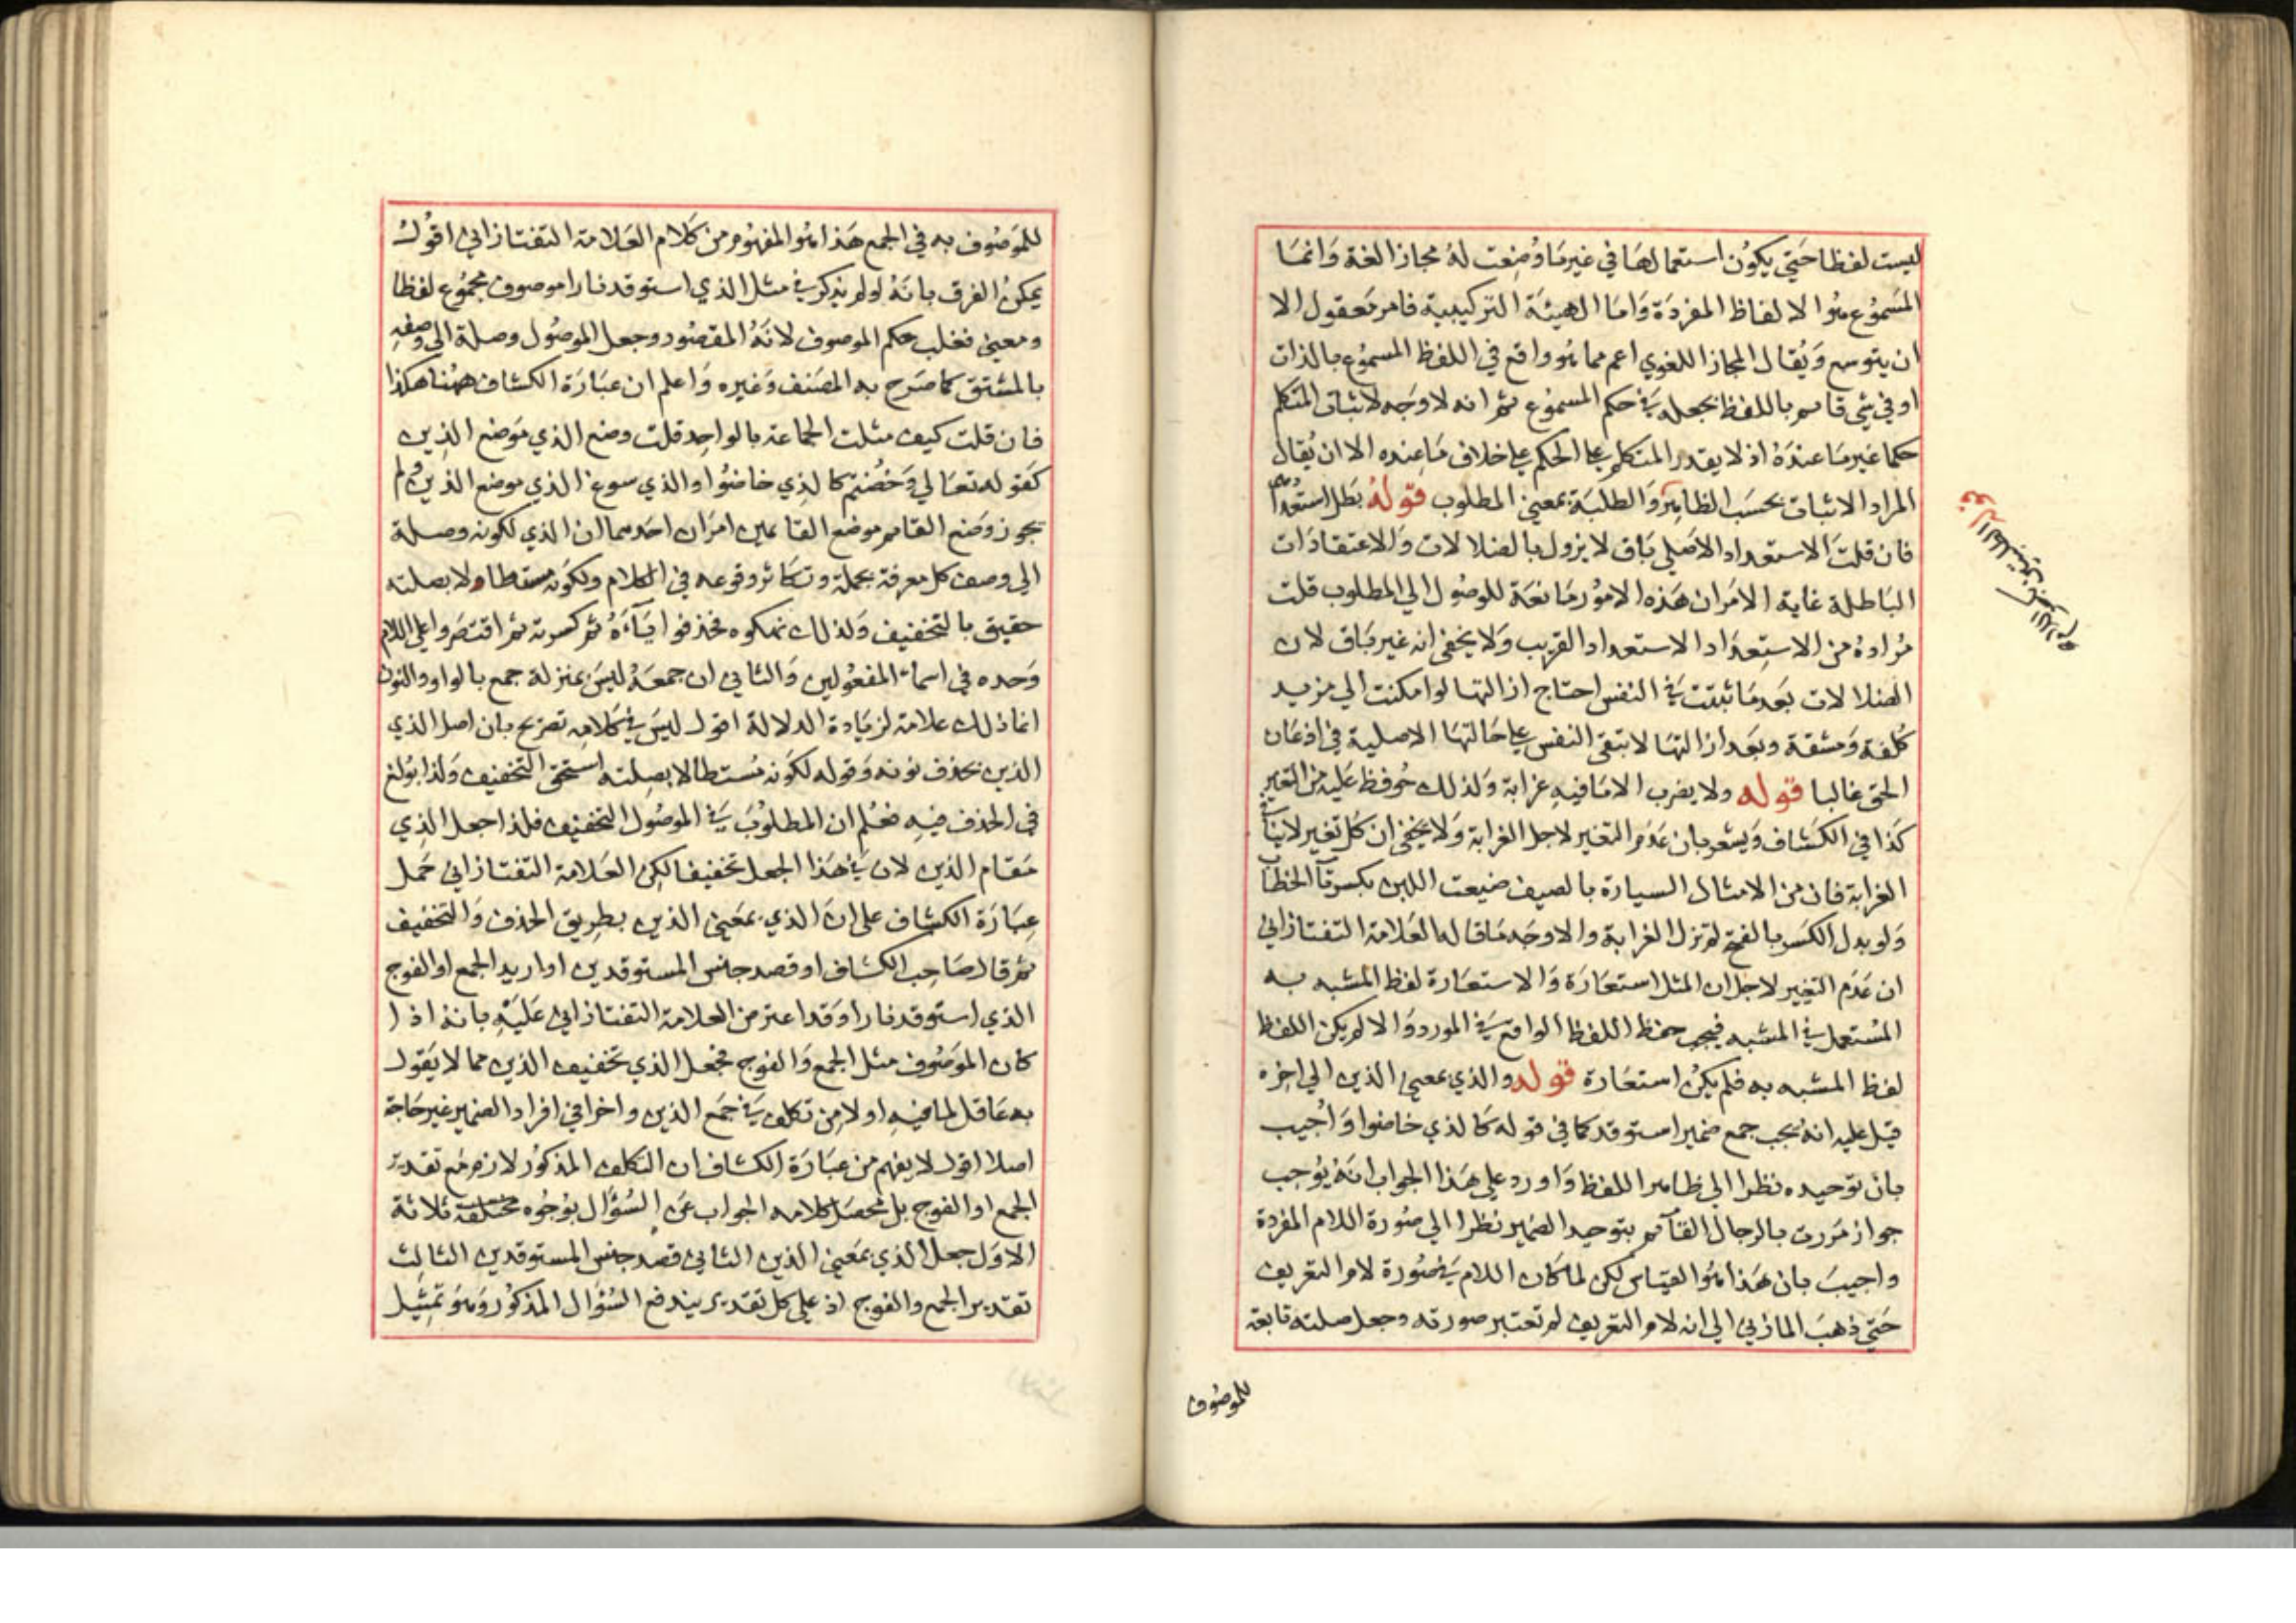 ليست لفظا حتي يكون استعمالها في غير ما وضعت له مجاز الغة وانما
المسموع هو الالفاظ المفردة واما الهيئة التركيبية فامر معقول الا
ان يتوسع ويقال المجاز اللغوي اعم مما هو واقع في اللفظ المسموع بالذات
او في شي قائم باللفظ بجعله في حكم المسموع ثم انه لا وجه لاثبات المتكلم
حكما غير ما عنده اذ لا يقدر المتكلم علي الحكم علي خلاف ما عنده الا ان يقال
المراد الاثبات بحسب الظاهر والطلبة بمعني المطلوب قوله بطل استعدادهم
فان قلت الاستعداد الاصلي باق لا يزول بالضلالات والاعتقادات
الباطلة غاية الامر ان هذه الامور مانعة للوصول الي المطلوب قلت
مراده من الاستعداد الاستعداد القريب ولا يخفي انه غير باق لان
الضلالات بعد ما ثبتت في النفس احتاج ازالتها لو امكنت الي مزيد
كلفة ومشقة وبعد ازالتها لا تبقي النفس علي حالتها الاصلية في اذعان
الحق غالبا قوله ولا يضرب الا ما فيه غرابة ولذلك حوفظ عليه من التغيير
كذا في الكشاف ويشعر بان عدم التغيير لاجل الغرابة ولا يخفي ان كل تغيير لا ينافي
الغرابة فان من الامثال السيارة بالصيف ضيعت اللبن بكسر تآ الخطاب
ولو بدل الكسر بالفتح لم تزل الغرابة والاوجه ما قاله العلامة التفتازاني
ان عدم التغيير لاجل ان المثل استعارة والاستعارة لفظ المشبه به
المستعمل في المشبه فيجب حفظ اللفظ الواقع في المورد والا لم يكن اللفظ
لفظ المشبه به فلم يكن استعارة قوله والذي بمعني الذين الي اخره
قيل عليه انه يجب جمع ضمير استوقد كما في قوله كالذي خاضوا واجيب
بان توحيده نظرا الي ظاهر اللفظ واورد علي هذا الجواب انه يوجب
جواز مررت بالرجال القائم بتوحيد الضمير نظرا الي صورة اللام المفردة
واجيب بان هذا هو القياس لكن لما كان اللام في صورة لام التعريف
حتي ذهب المازني الي انه لام التعريف لم تعتبر صورته وجعل صلته تابعة
للموصوف
للموصوف به في الجمع هذا هو المفهوم من كلام العلامة التفتازاني اقول
يمكن الفرق بانه لو لم يذكر في مثل الذي استوقد نارا موصوف مجموع لفظا
ومعني فغلب حكم الموصوف لانه المقصود وجعل الموصول وصلة الي وصفه
بالمشتق كما صرح به المصنف وغيره واعلم ان عبارة الكشاف ههنا هكذا
فان قلت كيف مثلت الجماعة بالواحد قلت وضع الذي موضع الذين
كقوله تعالي وخضتم كالذي خاضوا والذي سوغ الذي موضع الذين ولم
يجوز وضع القائم موضع القائمين امران احدهما ان الذي لكونه وصلة
الي وصف كل معرفة بجملة وتكاثر وقوعه في الكلام ولكونه مستطالا بصلته
حقيق بالتخفيف ولذلك نهكوه فحذفوا ياءه ثم كسرته ثم اقتصروا علي اللام
وحده في اسماء المفعولين والثاني ان جمعه ليس بمنزلة جمع بالواو والنون
انما ذلك علامة لزيادة الدلالة اقول ليس في كلامه تصريح بان اصل الذي
الذين بحذف نونه وقوله لكونه مستطالا بصلته استحق التخفيف ولذا بولغ
في الحذف فيه فعلم ان المطلوب في الموصول التخفيف فلذا جعل الذي
مقام الذين لان في هذا الجعل تخفيفا لكن العلامة التفتازاني حمل
عبارة الكشاف علي ان الذي بمعني الذين بطريق الحذف والتخفيف
ثم قال صاحب الكشاف او قصد جنس المستوقدين او اريد الجمع او الفوج
الذي استوقد نارا وقد اعترض العلامة التفتازاني عليه بانه اذا
كان الموصوف مثل الجمع والفوج فجعل الذي تخفيف الذين مما لا يقول
به عاقل لما فيه اولا من تكلف في جمع الذين واخرا في افراد الضمير غير حاجة
اصلا اقول لا يفهم من عبارة الكشاف ان التكلف المذكور لازم مع تقدير
الجمع او الفوج بل محصل كلامه الجواب عن السؤال بوجوه مختلفة ثلاثة
الاول جعل الذي بمعني الذين الثاني قصد جنس المستوقدين الثالث
تقدير الجمع والفوج اذ علي كل تقدير يندفع السؤال المذكور وهو تمثيل